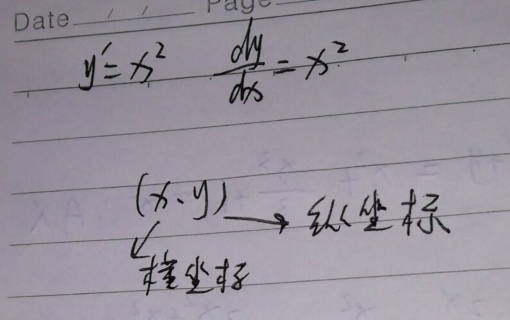 Date Page
y′=x² dy/dx=x²
(x、y) → 纵坐标
横坐标